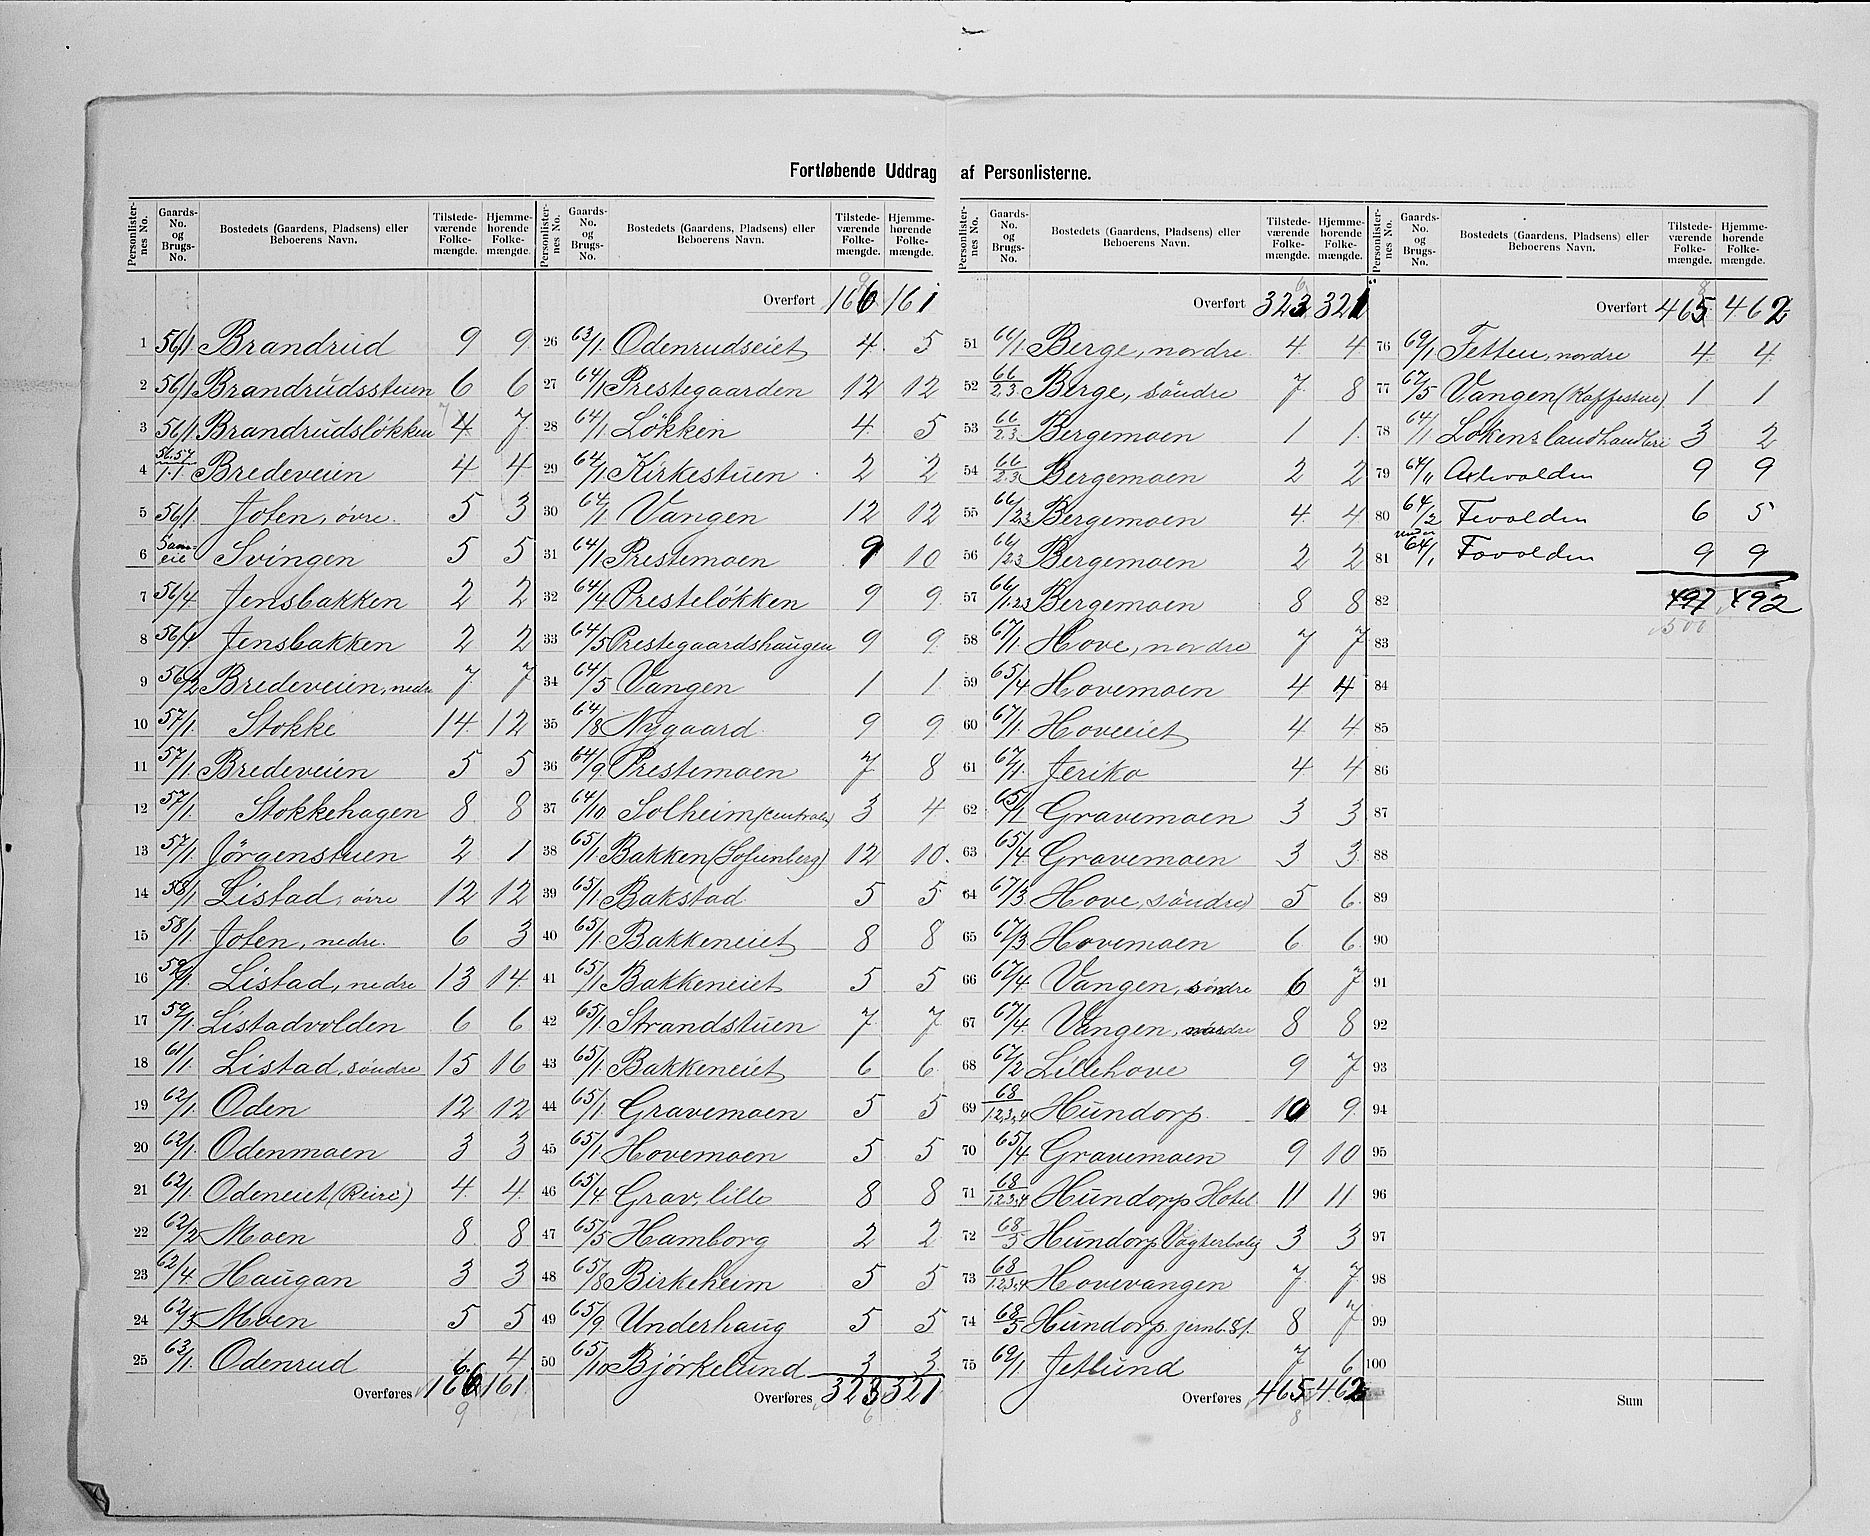 Fortløbende Uddrag af Personlisterne.
Personlisternes No. Gaards-No. og Brugs-No. Bostedets (Gaardens, Pladsens) eller Beboerens Navn. Tilstedeværende Folkemængde. Hjemmehørende Folkemængde.
1 56/1 Brandrud 9 9
2 56/1 Brandrudsstuen 6 6
3 56/1 Brandrudsløkken 4 7 7
4 56.57/1.1 Bredeveien 4 4
5 56/1 Joten, øvre. 5 3
6 Sameie Svingen 5 5
7 56/4 Jensbakken 2 2
8 56/1 Jensbakken 2 2
9 56/2 Bredeveien, nedre 7 7
10 57/1 Stokke 14 12
11 57/1 Bredeveien 5 5
12 57/1 Stokkehagen 8 8
13 57/1 Jørgenstuen 2 1
14 58/1 Listad, øvre 12 12
15 58/1 Joten, nedre. 6 3
16 59/1 Listad, nedre 13 14
17 59/1 Listadvolden 6 6
18 61/1 Listad, søndre 15 16
19 62/1 Oden 12 12
20 62/1 Odenmoen 3 3
21 62/1 Odeneiet (Reiri) 4 4
22 62/2 Moen 8 8
23 62/4 Haugan 3 3
24 62/5 Moen 5 5
25 63/1 Odenrud 6 4
Overføres 166 161
9
Personlisternes No. Gaards-No. og Brugs-No. Bostedets (Gaardens, Pladsens) eller Beboerens Navn. Tilstedeværende Folkemængde. Hjemmehørende Folkemængde.
9
Overført 166 161
26 63/1 Odenrudseiet 4 5
27 64/1 Prestegaarden 12 12
28 64/1 Løkken 4 5
29 64/1 Kirkestuen 2 2
30 64/1 Vangen 12 12
31 64/1 Prestemoen 9 10
32 64/4 Presteløkken 9 9
33 64/5 Prestegaardshaugen 9 9
34 64/5 Vangen 1 1
35 64/8 Nygaard 9 9
36 64/9 Prestemoen 7 8
37 64/10 Solheim (centralen) 3 4
38 65/1 Bakken (Sofienberg) 12 10.
39 65/1 Bakstad 5 5
40 65/1 Bakkeneiet 8 8
41 65/1 Bakkeneiet 5 5
42 65/1 Strandstuen 7 7
43 65/1 Bakkeneiet 6 6
44 65/1 Gravemoen 5 5
45 65/1 Hovemoen 5 5
46 65/4 Grav, lille 8 8
47 65/5 Hamborg 2 2
48 65/8 Birkeheim 5 5
49 65/9 Underhaug 5 5
50 65/10 Bjørkelund 3 3
Overføres 323 321
6
Personlisternes No. Gaards-No. og Brugs-No. Bostedets (Gaardens, Pladsens) eller Beboerens Navn. Tilstedeværende Folkemængde. Hjemmehørende Folkemængde.
6
Overført 323 321
51 66/1 Berge, nordre 4 4
52 66/2.3 Berge, søndre 7 8
53 66/2.3 Bergemoen 1 1
54 66/2.3 Bergemoen 2 2
55 66/2.3 Bergemoen 4 4
56 66/2.3 Bergemoen 2 2
57 66/1.2.3 Bergemoen 8 8
58 67/1 Hove, nordre 7 7
59 65/4 Hovemoen 4 4
60 67/1 Hoveeiet 4 4
61 67/1 Jeriko 4 4
62 65/1 Gravemoen 3 3
63 65/4 Gravemoen 3 3
64 67/3 Hove, søndre 5 6
65 67/3 Hovemoen 6 6
66 67/4 Vangen, søndre 6 7
67 67/4 Vangen, nordre 8 8
68 67/2 Lillehove 9 7
69 68/1,2,3,4 Hundorp 10 9
70 65/4 Gravemoen 9 10
71 68/1.2.3.4 Hundorp Hotel 11 11
72 68/5 Hundorp Vogterbolig 3 3
73 68/1.2.3.4 Hovevangen 7 7
74 68/5 Hundorp jernb. St. 8 7
75 69/1 Jetlund 7 6
Overføres 465 462
8
Personlisternes No. Gaards-No. og Brugs-No. Bostedets (Gaardens, Pladsens) eller Beboerens Navn. Tilstedeværende Folkemængde. Hjemmehørende Folkemængde.
8
Overført 465 462
76 69/1 Tetten, nordre 4 4
77 67/5 Vangen (Kaffestue) 1 1
78 64/1 Lokens landhandleri 3 2
79 64/11 9 9
80 64/2 6 5
81 64/1 9 9
82 497 492
500
83
84
85
86
87
88
89
90
91
92
93
94
95
96
97
98
99
100
Sum